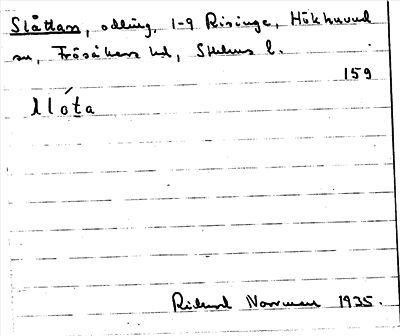 Slåttan, odling, 1-9 Risinge, Hökhuvud
sn, Frösåkers hd, Sthlms l.
159
slóta
Rickard Norrman 1935.